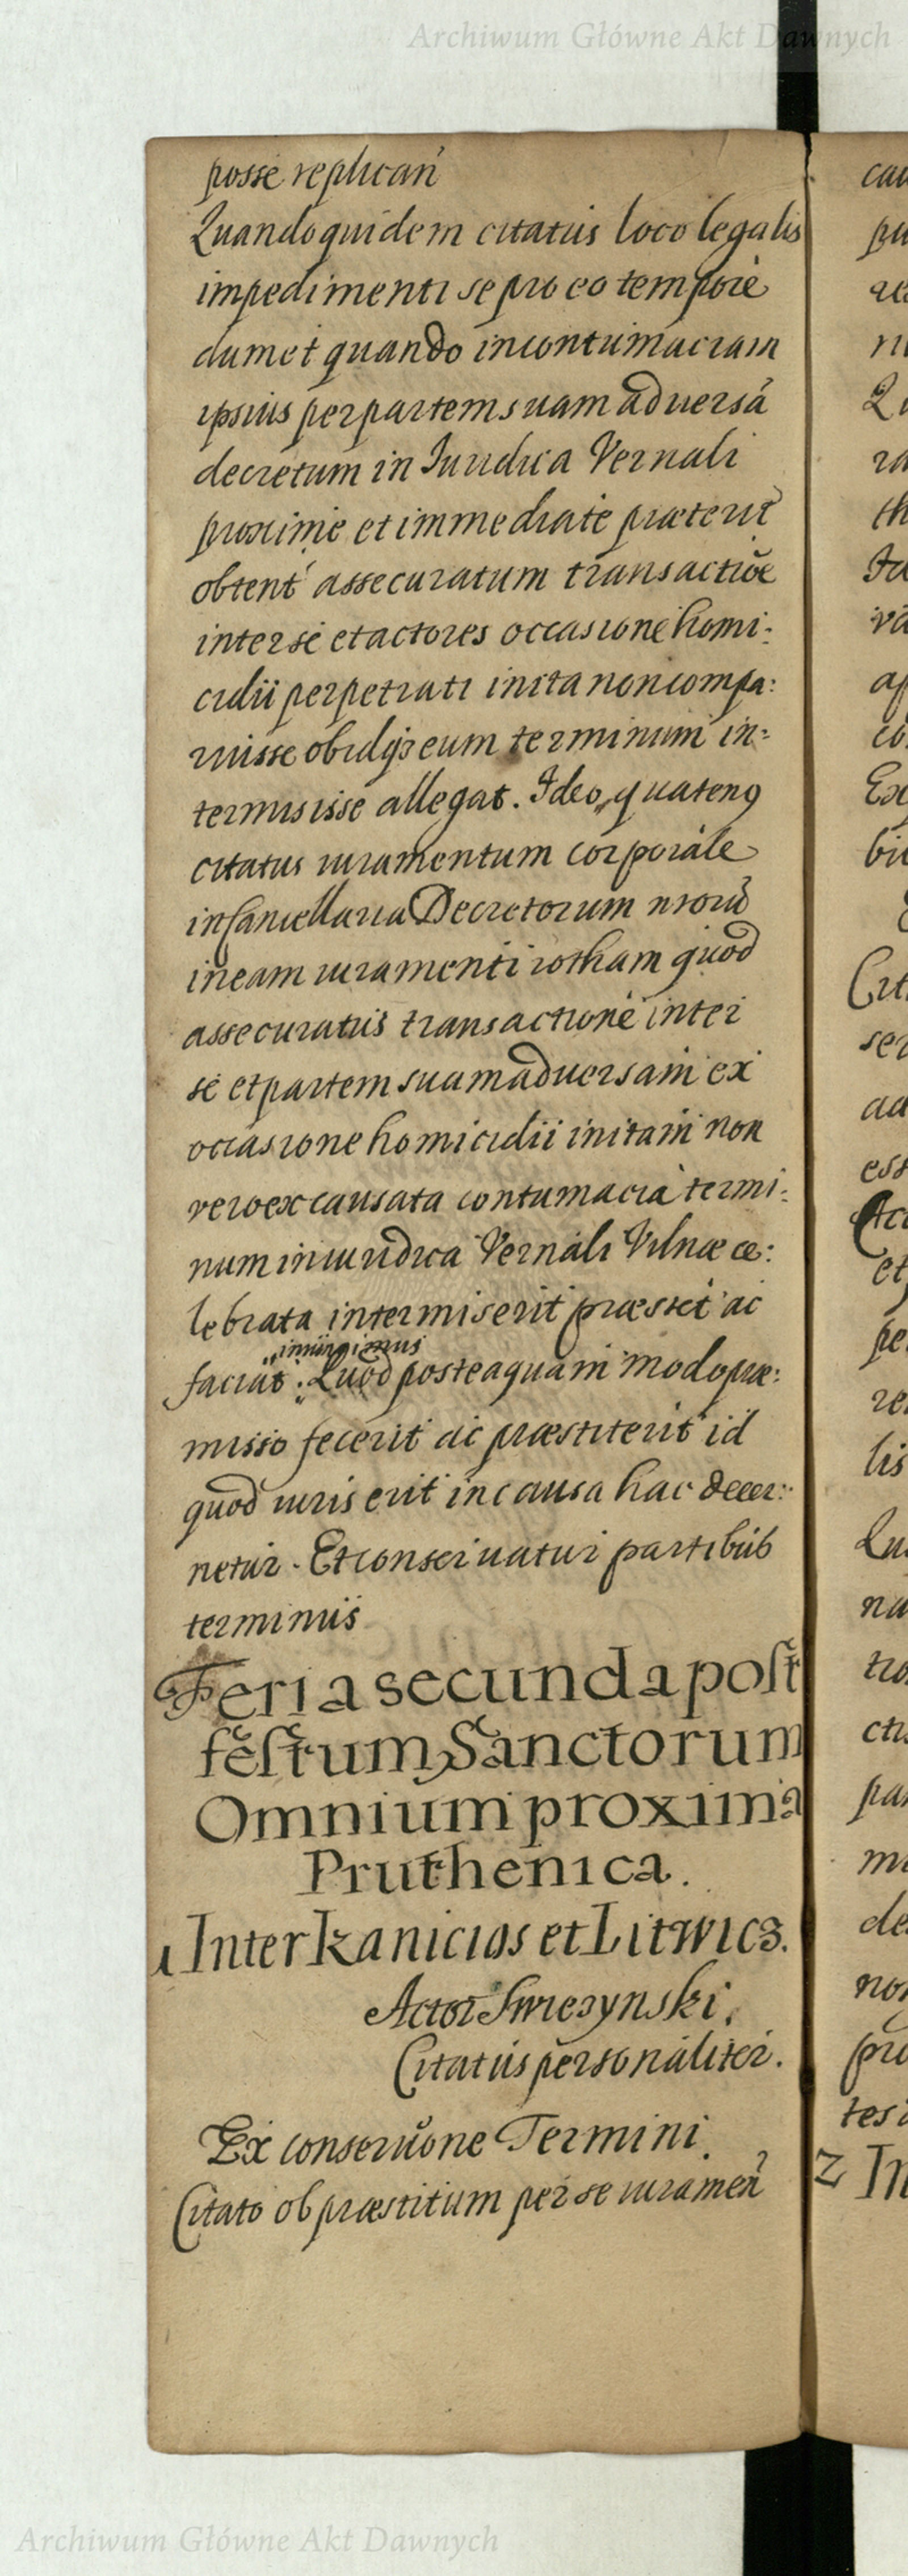 Archiwum Główne Akt Dawnych
posse replicari
Quandoquidem citatus loco legalis
impedimenti se pro eo tempore
dum et quando in contumaciam
ipsius per partem suam adversã
decretum in Juridica Vernali
proxime et immediate præterit
obtent assecuratum transactiõe
inter se et actores occasione homi:
cidii perpetrati inita non compa:
ruisse obidq3 eum terminum in:
termisisse allegat. Ideo, quaten9
citatus iuramentum corporale
in Cancellaria Decretorum nrorũ
in eam iuramenti rotham quod
assecuratus transactione inter
se et partem suam adversam ex
occasione homicidii initam non
vero ex causata contumacia termi:
num in iuridica Vernali Vilnæ ce:
lebrata intermiserit præstet ac
iniungimus
faciat: Quod posteaquam modo præ:
misso fecerit ac præstiterit id
quod iuris erit in causa hac decer:
netur. Et conservatur partibus
terminus
Feria secunda post
festum Sanctorum
Omnium proxima
Pruthenica.
1 Inter Kanicios et Litwicz.
Actor Swiezynski.
Citatus personaliter.
Ex conservõne Termini.
Citato ob præstitum per se iuramen
2 In
Archiwum Główne Akt Dawnych